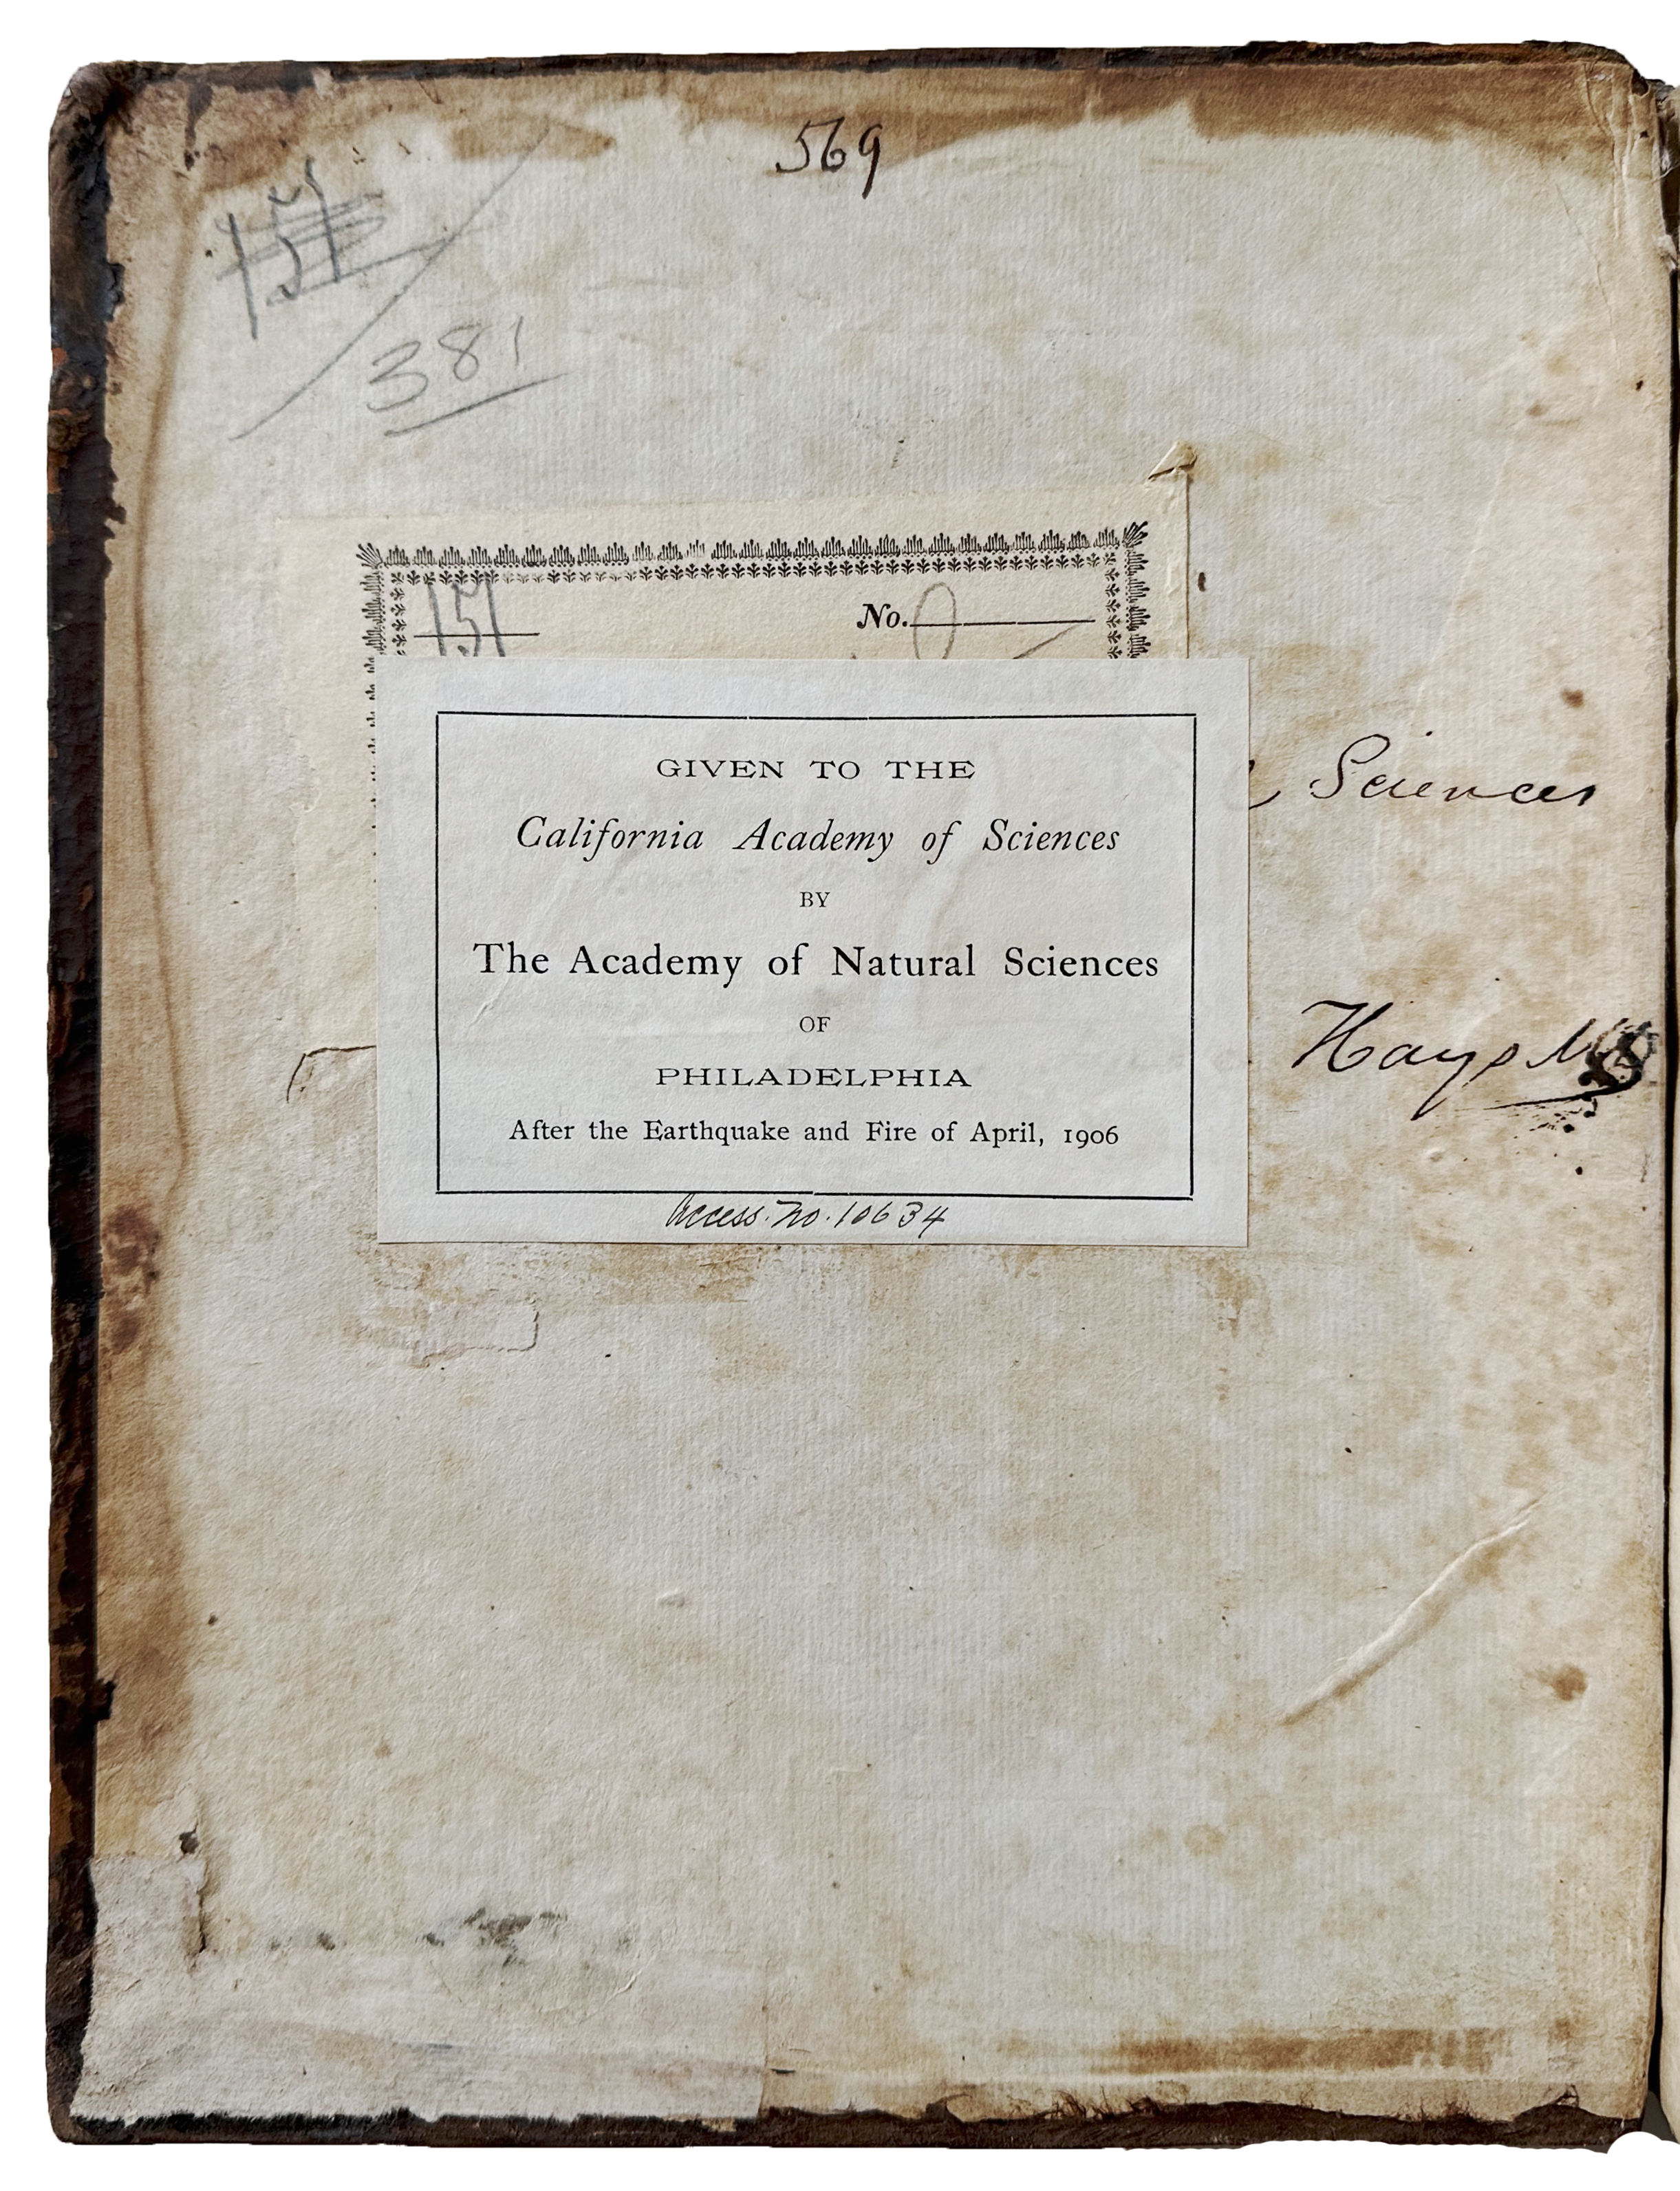 569
151
381
151
No.
Sciences
GIVEN TO THE
California Academy of Sciences
BY
The Academy of Natural Sciences
OF
PHILADELPHIA
After the Earthquake and Fire of April, 1906
Access. No. 10634
Hays